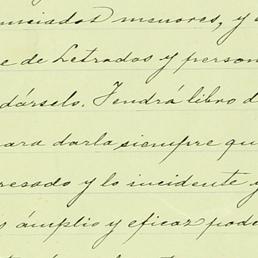 nunciados menores, y a
e de Letrados y person
dárselo. Tendrá libro d
para darla siempre qu
resado y lo incidente y
s ámplio y eficaz pode